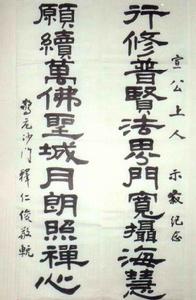 宣公上人 示寂紀念
行修普賢法界門寬攝海慧
願續萬佛聖城月朗照禪心
沙門釋仁俊敬輓